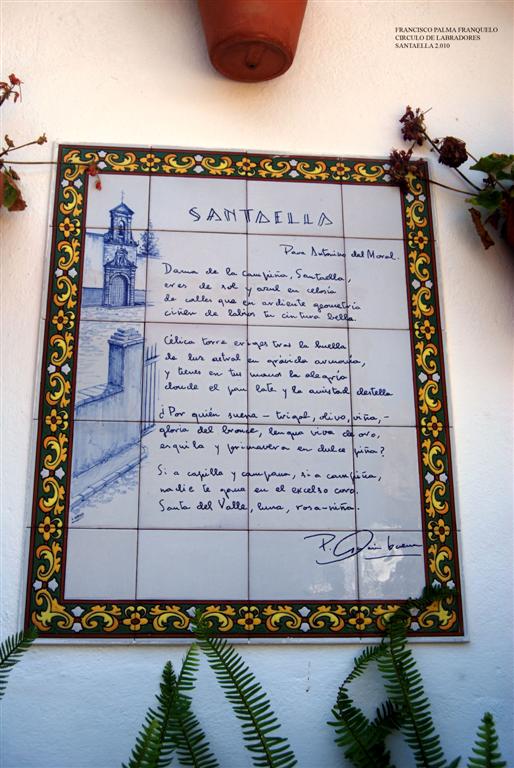 FRANCISCO PALMA FRANQUELO
CIRCULO DE LABRADORES
SANTAELLA 2.010
SANTAELLA
Para Antonino del Moral.
Dama de la campiña, Santaella,
eres de sol y azul en celosía
de calles que en ardiente geometría
ciñen de labios tu cintura bella.
Célica torre eriges tras la huella
de luz astral en grávida armonía,
y tienes en tus manos la alegría
donde el pan late y la amistad destella
¿Por quién suena - trigal, olivo, viña, -
gloria del bronce, lengua viva de oro,
esquila y primavera en dulce piña?
Si a capilla y campana, si a campiña,
nadie te gana en el excelso coro.
Santa del Valle, luna, rosa-niña.
P.